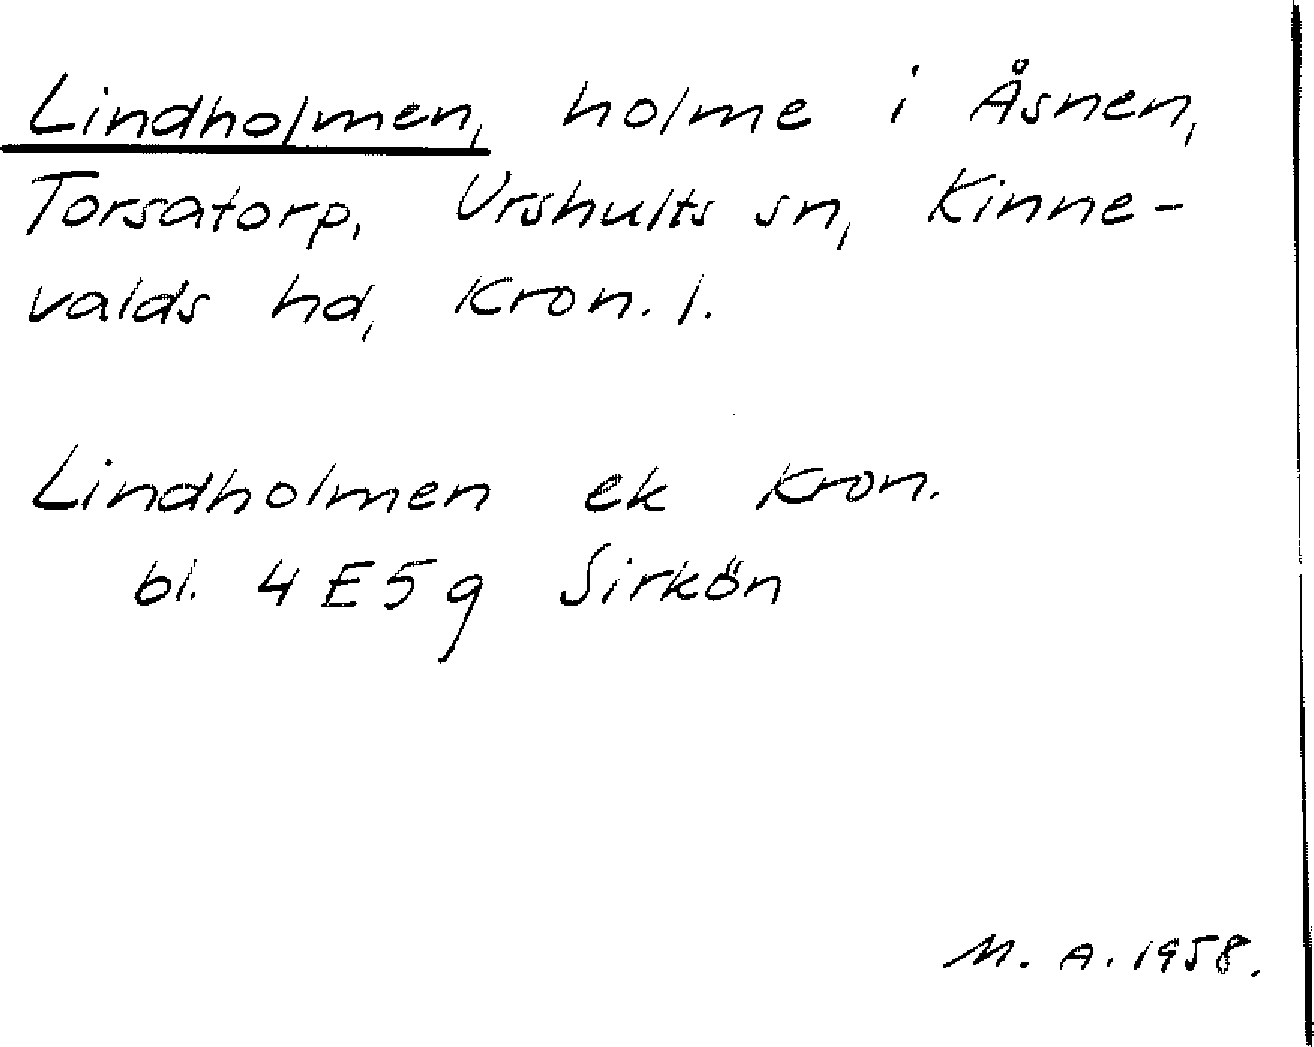 Lindholmen, holme i Åsnen,
Torsatorp, Urshults sn, Kinne-
valds hd, Kron. l.
Lindholmen ek Kron.
bl. 4 E 5 g Sirkön
M. A. 1958.